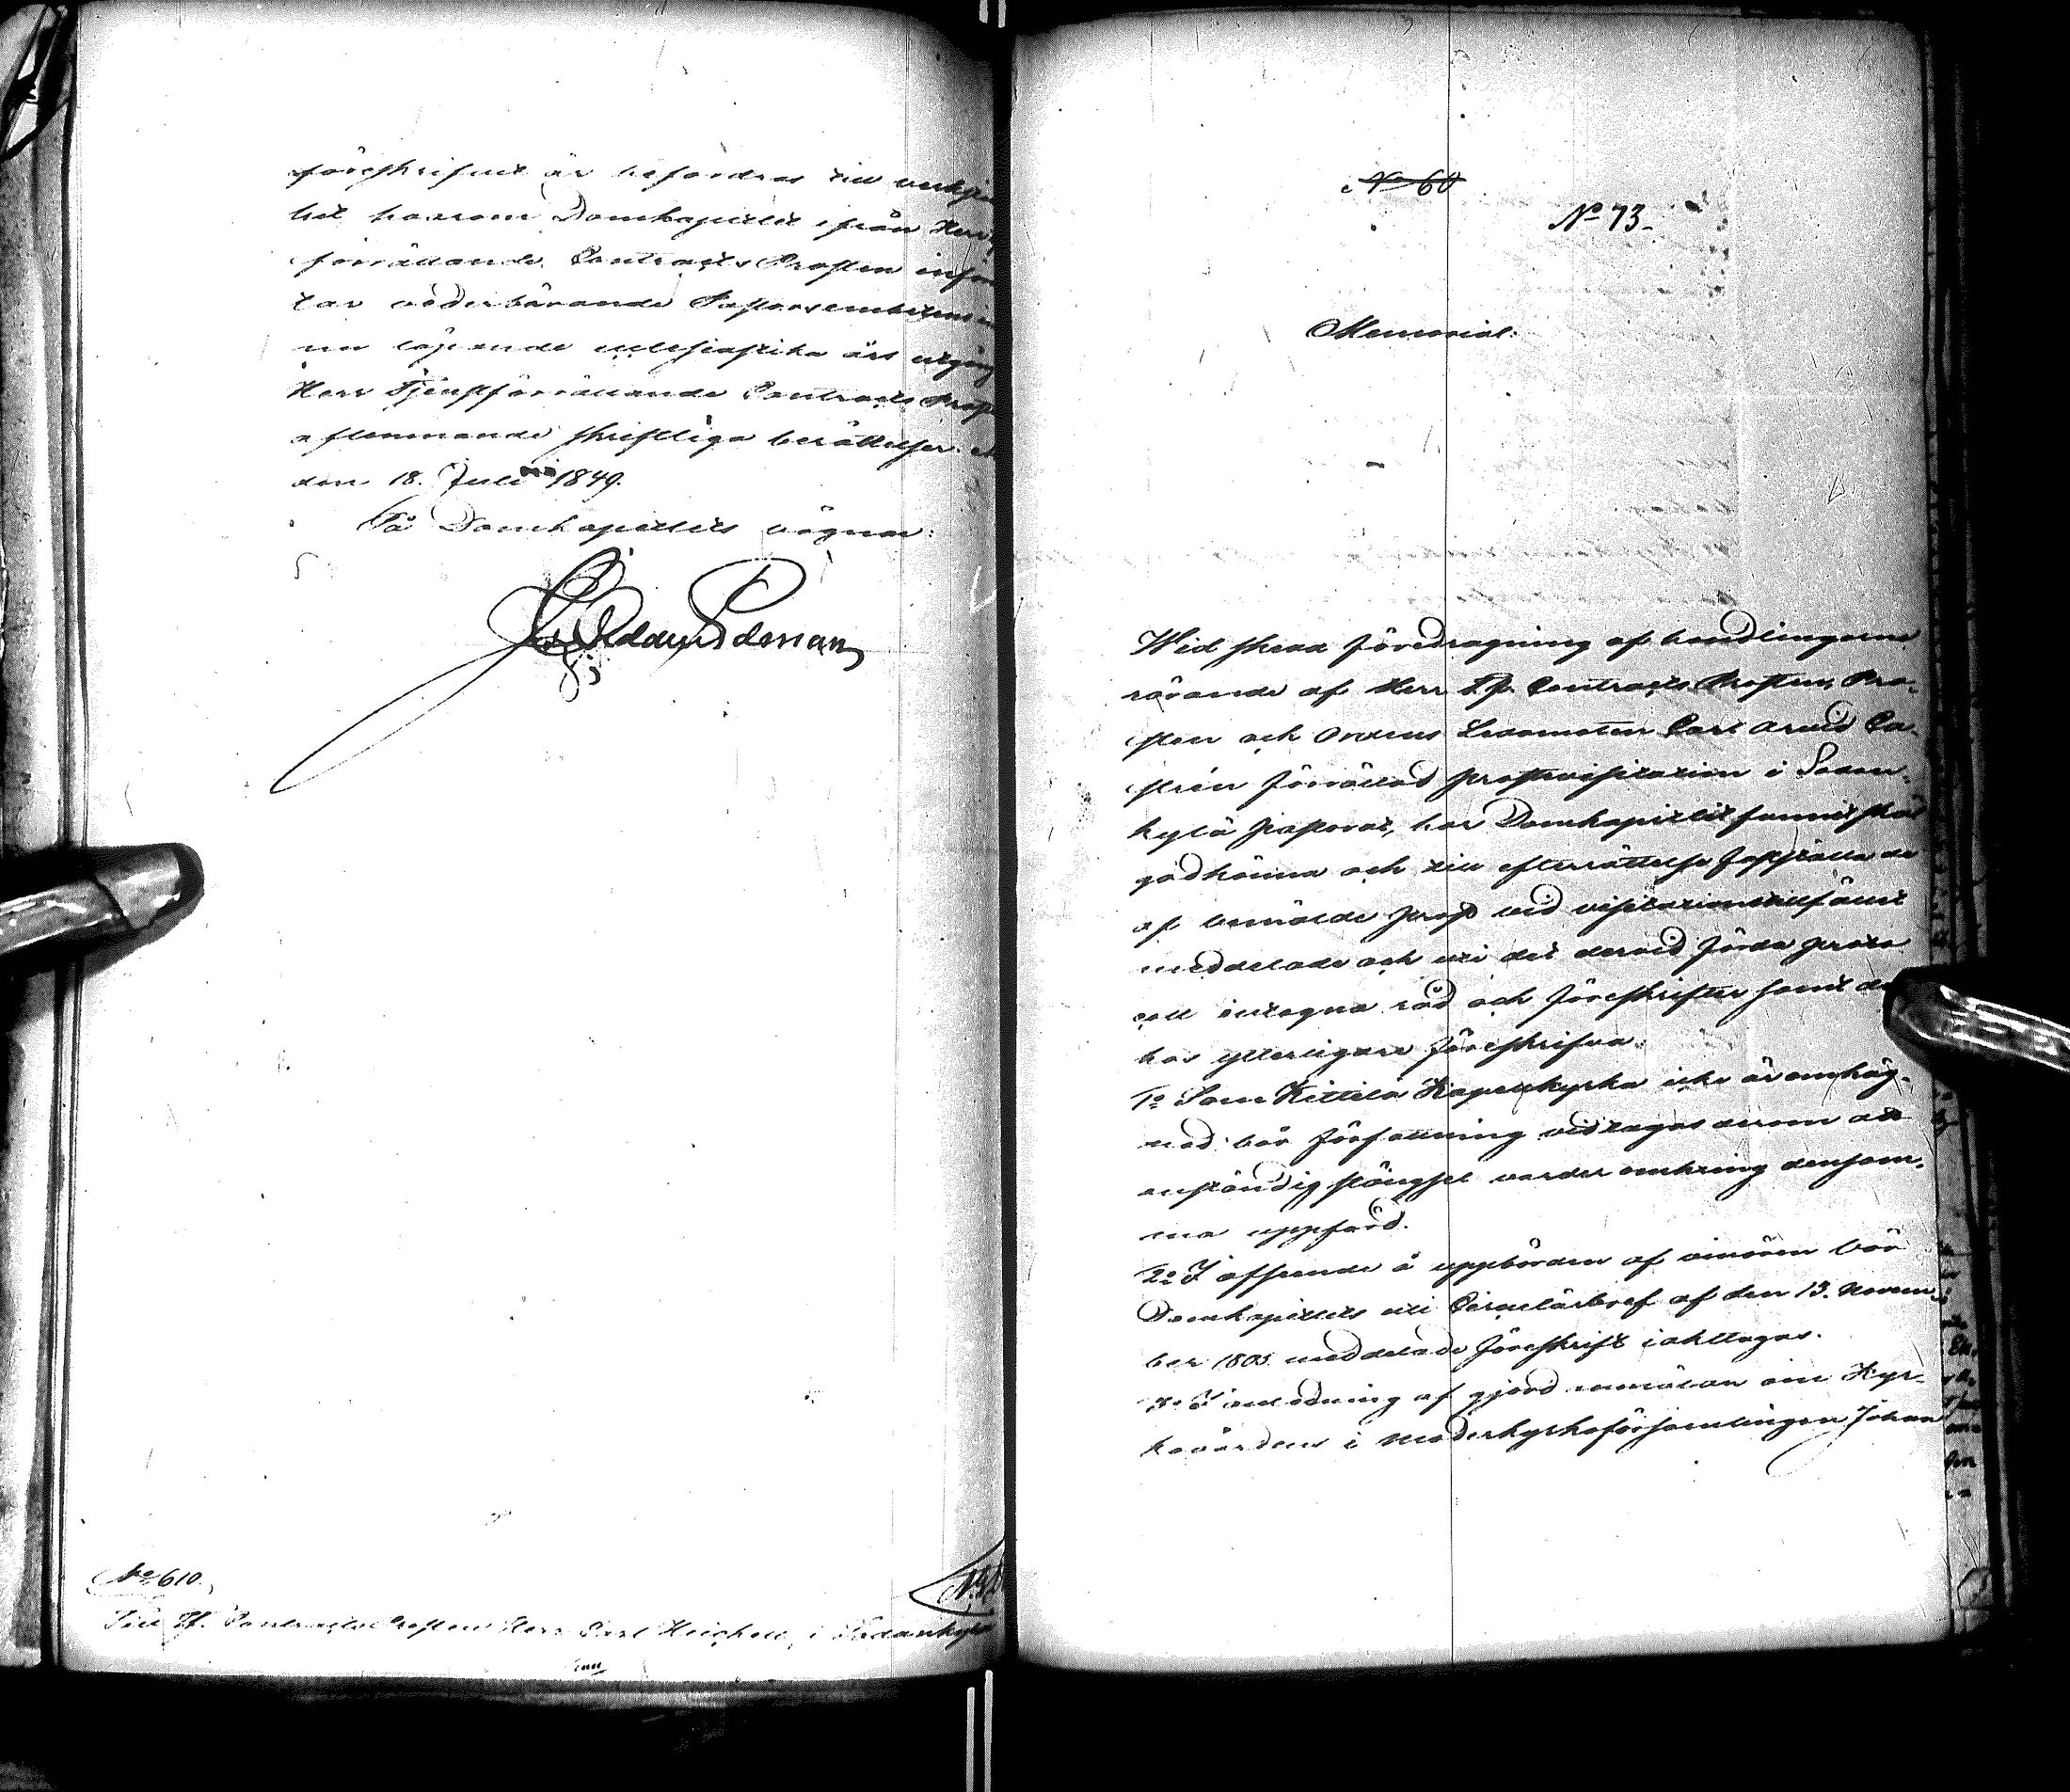 föreskrifvet är befordras till verkstäl
het hvarom Domkapitlet ifrån Herr
förrättande Contracts Prosten inför
tar vederbörande Pastorsembetens in
nu löpande ecclesiastika års utgång
Herr Tjenstförrättande Contracts Prost
aflemnande skriftliga berättelser.
den 18. Julii 1849.
På Domkapitlets vägnar:
No 610.
Till Tf. Contracts Prosten Herr Carl Heickell, i Sodankylä
No 60
No 73.
Memorial.
Wid skedd föredragning af handlingarne
rörande af Herr T.f. Contracts Prosten, Pro-
sten och Ordens Ledamoten Carl Arvid Ca-
strén förrättad prostevisitation i Sodan-
kylä pastorat, har Domkapitlet funnit skäl
godkänna och till efterrättelse fastställa de
af bemälde Prost vid visitationstillfället
meddelade och uti det dervid förda proto
coll intagna råd och föreskrifter samt de
hos ytterligare föreskrifva:
1o Som Kittilä Kapellkyrka icke är omhäg-
nad bör författning vidtagas derom att
anständig stängsel varder omkring densam-
ma uppförd.
2o I afseende å uppbörden af vinören bör
Domkapitlets uti Circulärbref af den 13. Novem-
ber 1805 meddelade föreskrift iakttagas.
3o I anledning af gjord anmälan om Kyr-
kovärdens i moderkyrkoförsamlingen Johan